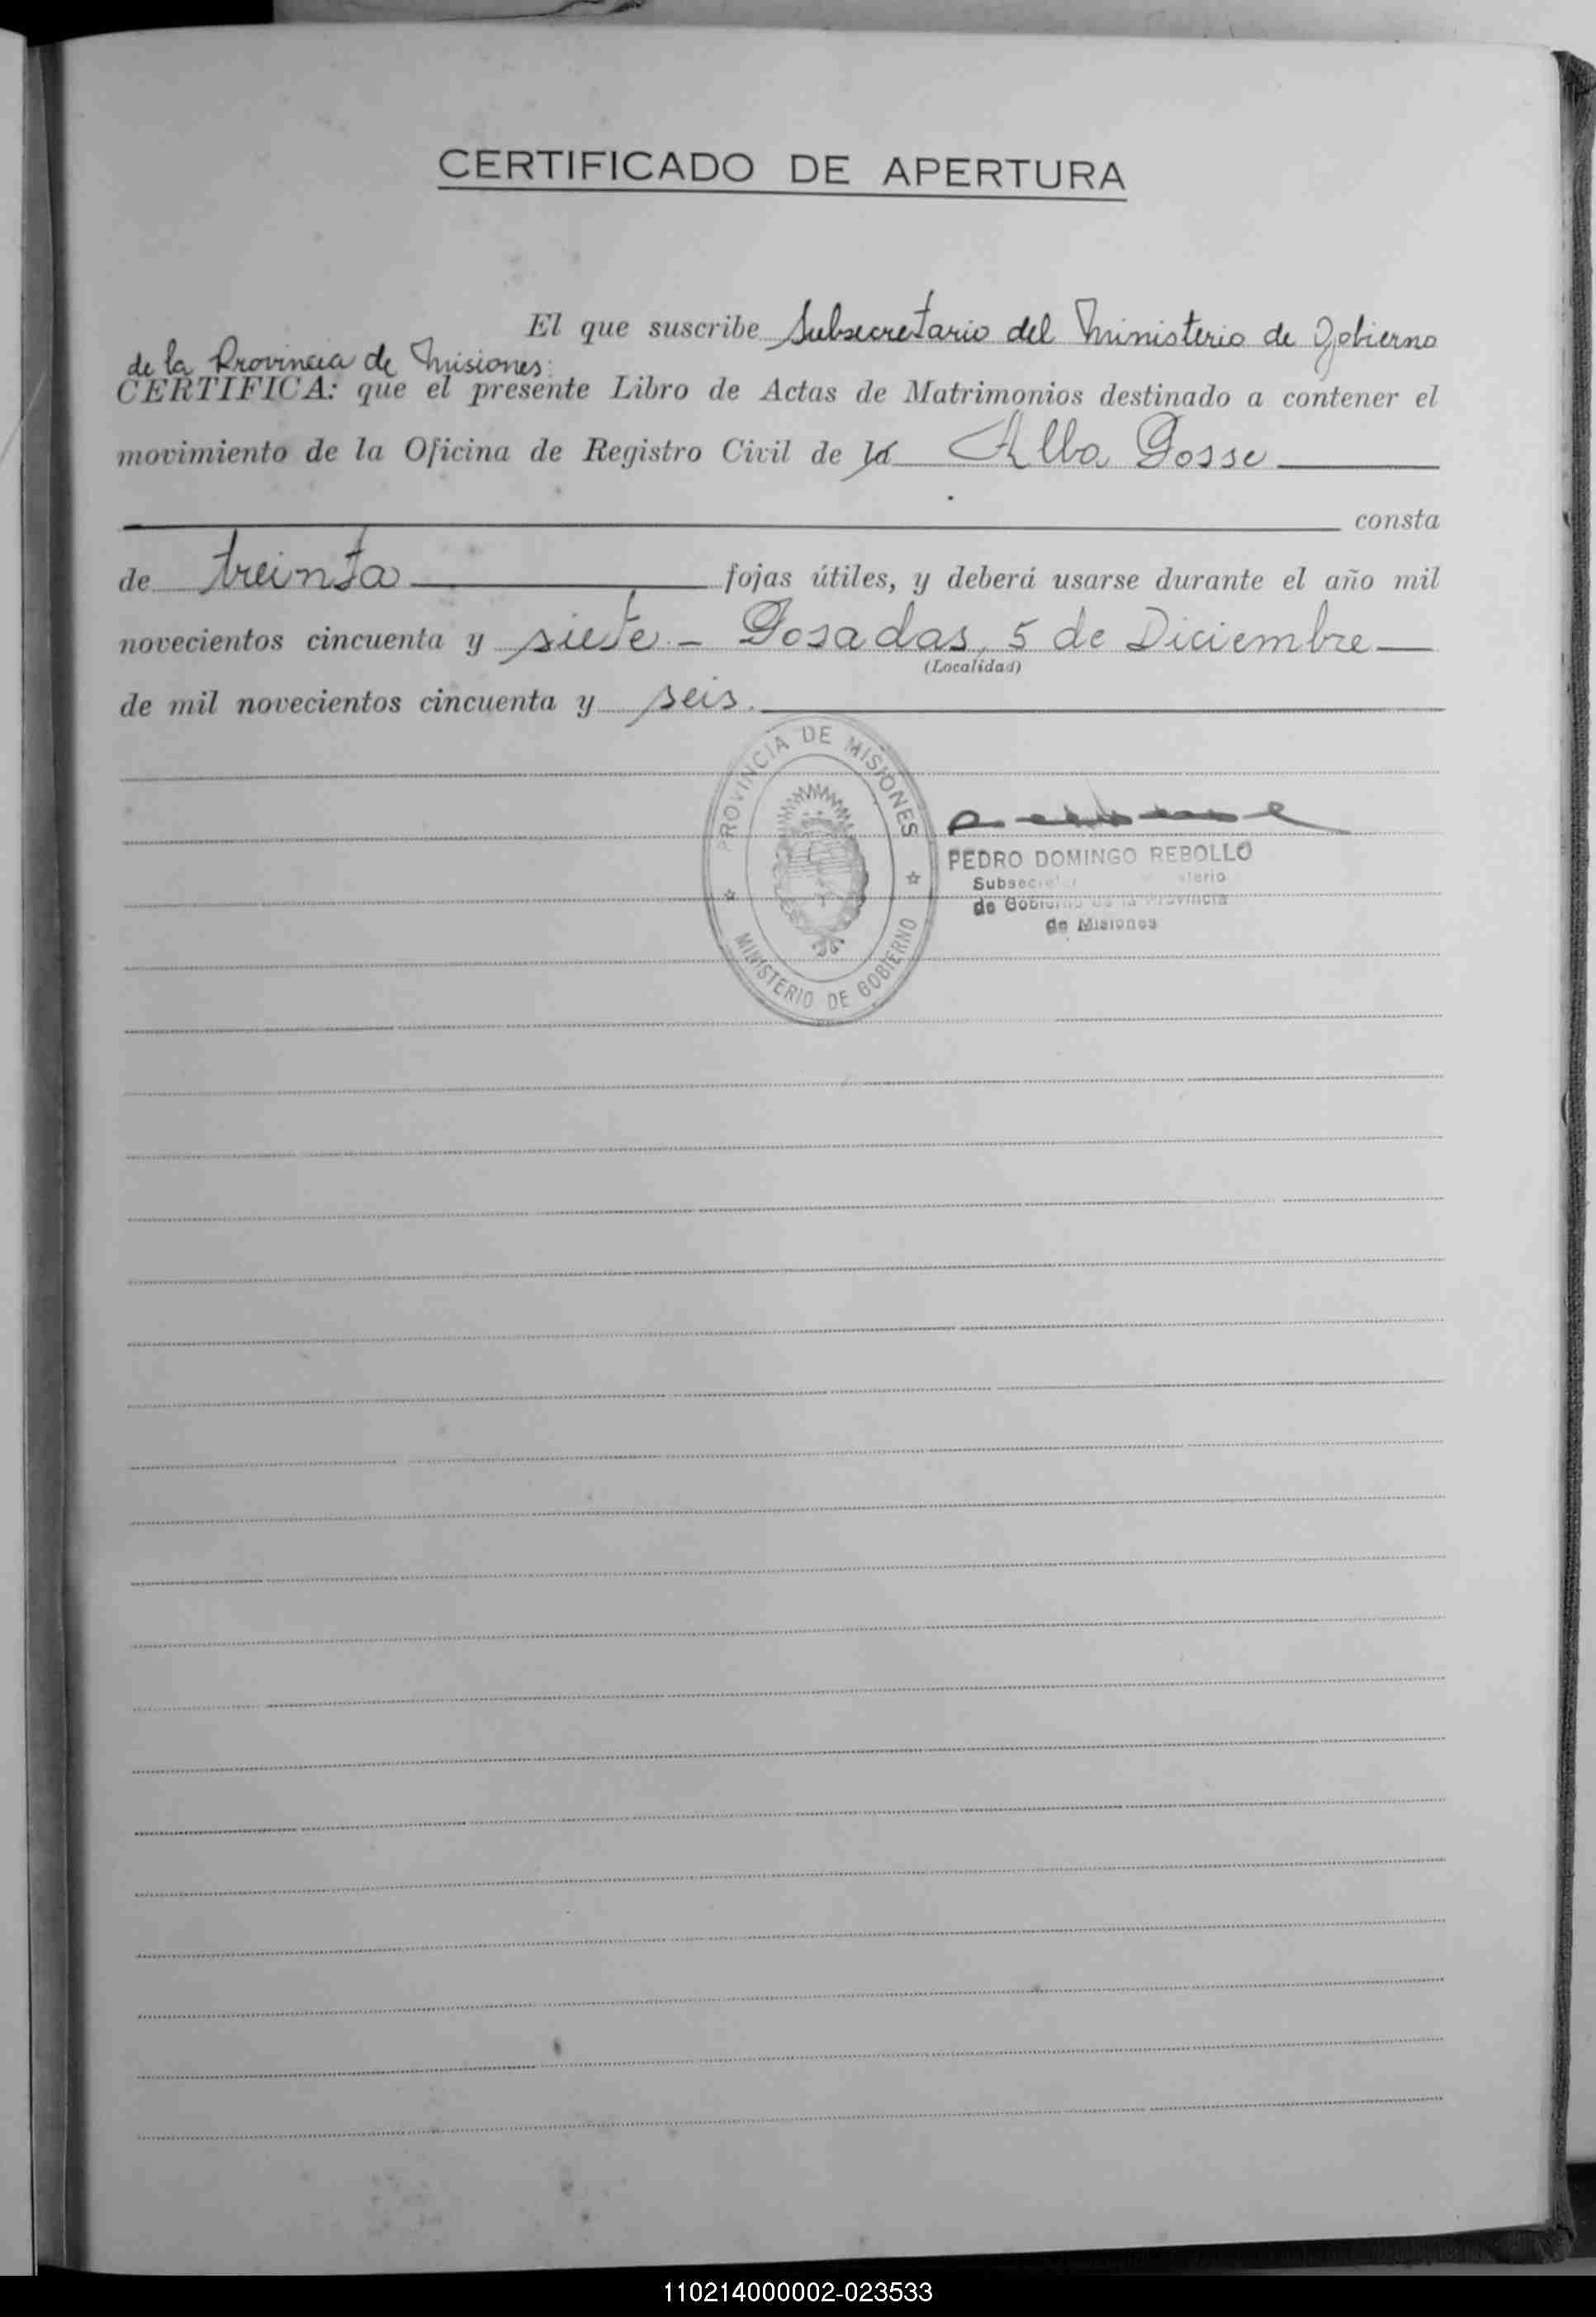 CERTIFICADO DE APERTURA
El que suscribe Subsecretario del Ministerio de Gobierno
de la Provincia de Misiones:
CERTIFICA: que el presente Libro de Actas de Matrimonios destinado a contener el
movimiento de la Oficina de Registro Civil de Alba Posse
consta
de treinta fojas útiles, y deberá usarse durante el año mil
novecientos cincuenta y siete.- Posadas, 5 de Diciembre
(Localidad)
de mil novecientos cincuenta y seis.
PROVINCIA DE MISIONES
MINISTERIO DE GOBIERNO
PEDRO DOMINGO REBOLLO
de Gobierno de la Provincia
de Misiones
110214000002-023533